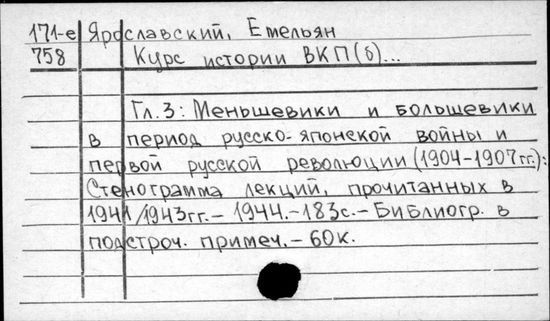 171-е Ярославский, Емельян
758 Курс истории ВКП(б)...
Гл.3: Меньшевики и большевики
в период русско-японской войны и
первой русской революции (1904-1907гг.):
Стенограмма лекций, прочитанных в
1941/1943гг.- 1944.-183с.-Библиогр. в
подстроч. примеч.- 60к.